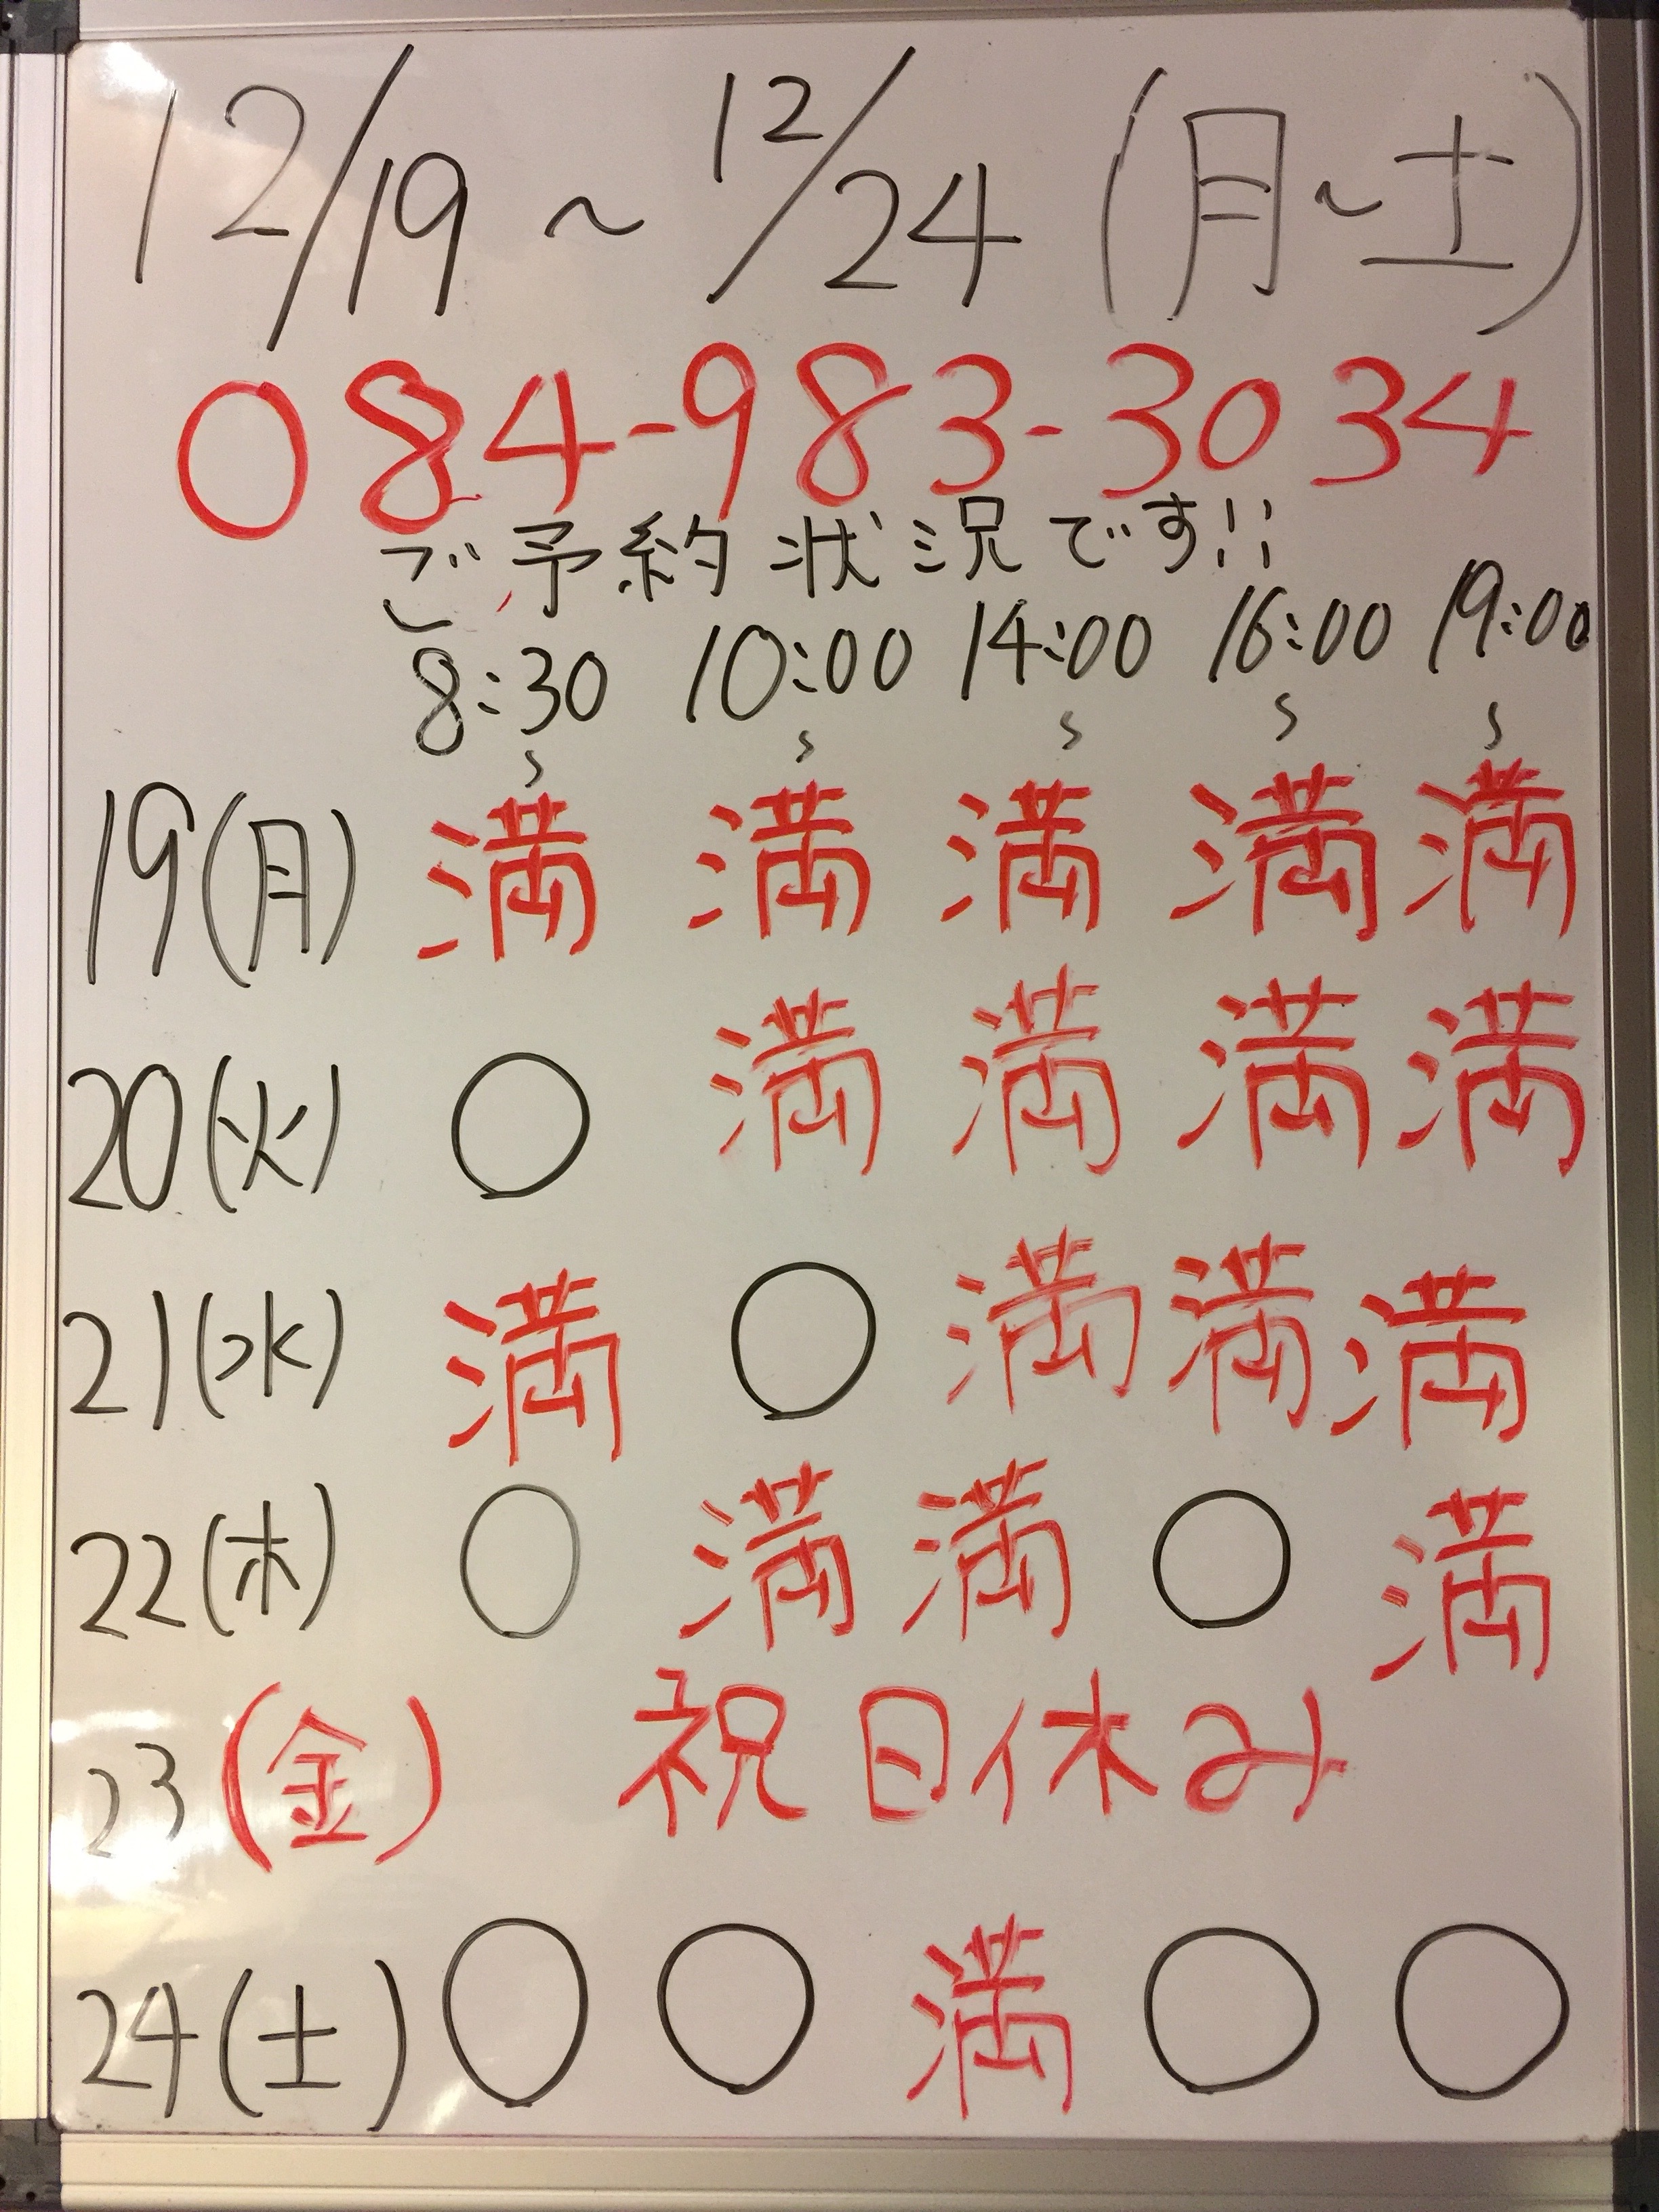 12/19 ~ 12/24 (月~土)
084-983-3034
ご予約状況です!!
8:30~ 10:00~ 14:00~ 16:00~ 19:00~
19(月) 満 満 満 満 満
20(火) ○ 満 満 満 満
21(水) 満 ○ 満 満 満
22(木) ○ 満 満 ○ 満
23(金) 祝日休み
24(土) ○ ○ 満 ○ ○